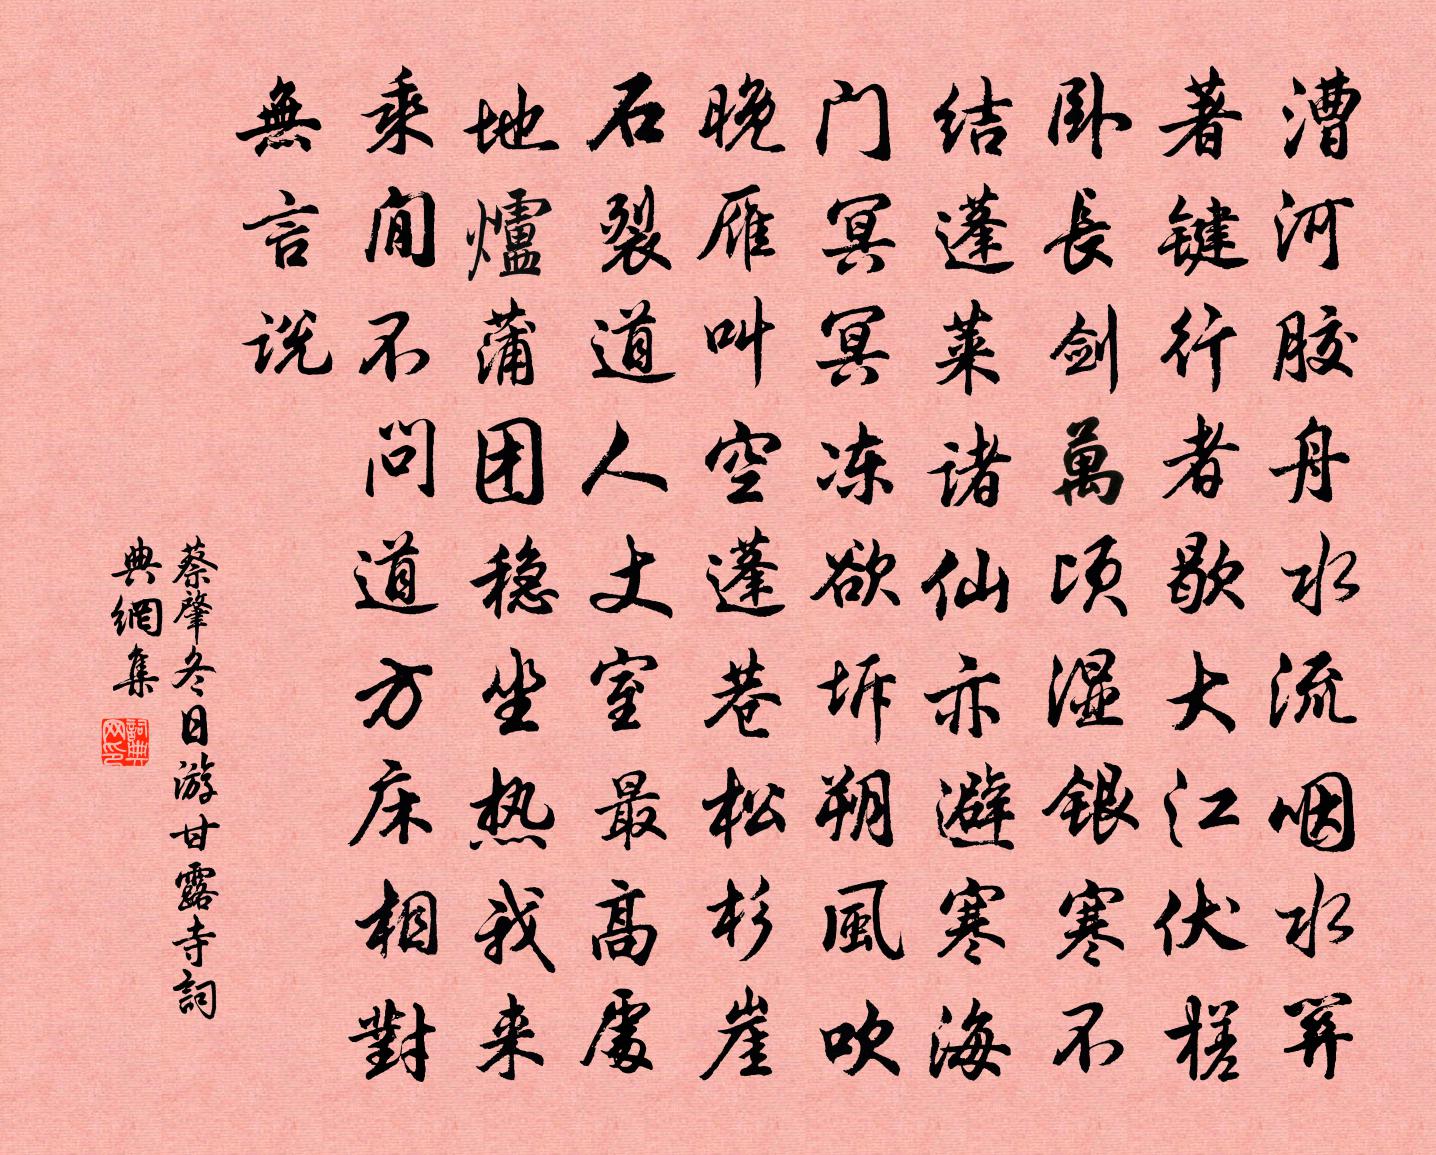 漕河胶舟水流咽水笄
著键行者歇大江伏槎
卧長剑萬顷湿銀寒不
结蓬莱诸仙亦避寒海
门冥冥冻欲坼朔風吹
晚雁叫空蓬巷松杉崖
石裂道人丈室最高處
地爐蒲团稳坐热我来
乘閒不问道方床相對
無言说
蔡肇冬日游甘露寺詞
典網集
詞典网印